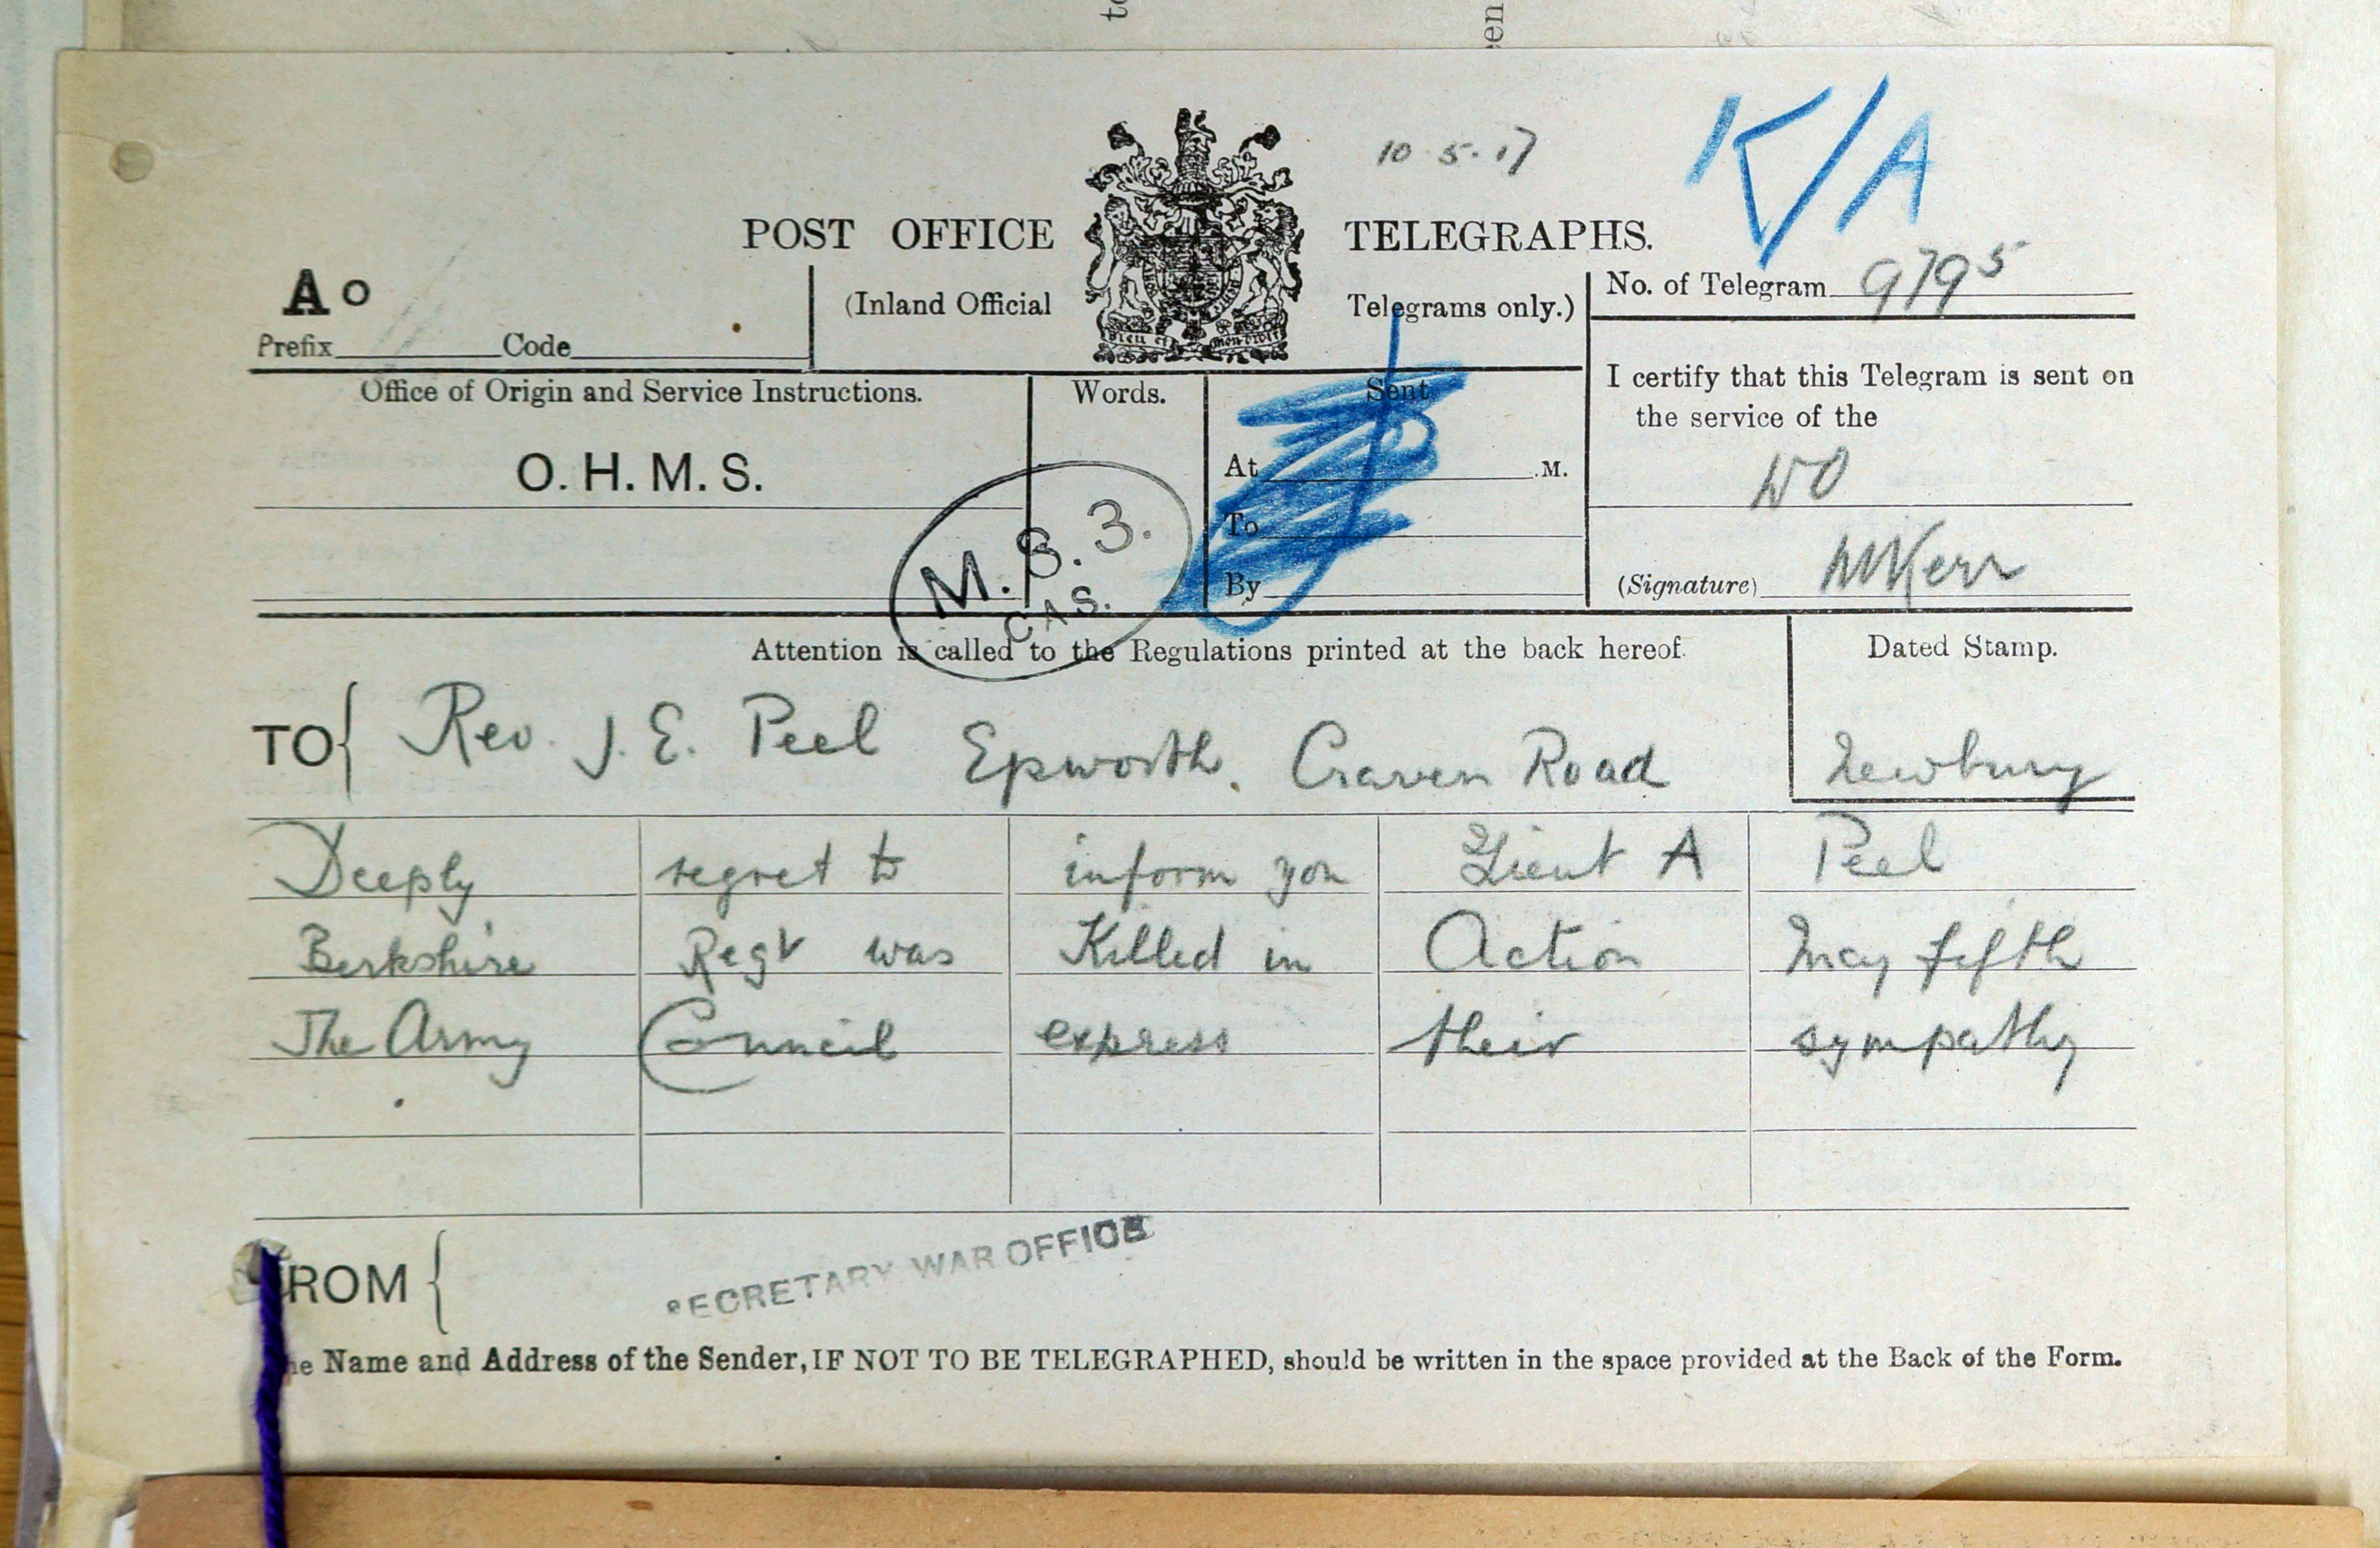 to
en
K/A
10 5.17
POST OFFICE TELEGRAPHS.
A o
(Inland Official Telegrams only.)
No. of Telegram 9795
Prefix Code
Dieu et mon droit
Office of Origin and Service Instructions.
Words.
Sent
I certify that this Telegram is sent on
the service of the
O. H. M. S.
At .M.
WO
M.S.3.
CAS.
To
By
(Signature) Kerr
Attention is called to the Regulations printed at the back hereof.
Dated Stamp.
TO Rev. J. E. Peel Epworth. Craven Road Newbury
Deeply regret to inform you Lieut A Peel
Berkshire Regt was Killed in Action May fifth
The Army Council express their sympathy
SECRETARY WAR OFFICE
ROM
he Name and Address of the Sender, IF NOT TO BE TELEGRAPHED, should be written in the space provided at the Back of the Form.